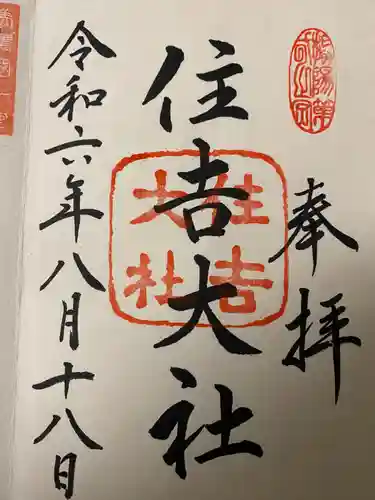 奉拝
住吉大社
住吉大社
令和六年八月十八日